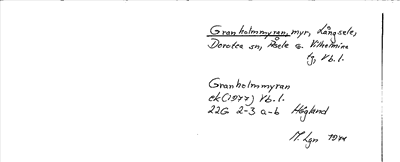 Granholmmyran, myr, Långsele,
Dorotea sn, Åsele o. Vilhelmina
tg, Vb. l.
Granholmmyran
ek (1977) Vb. l.
22G 2-3 a-b Högland
M. Lgn 1974